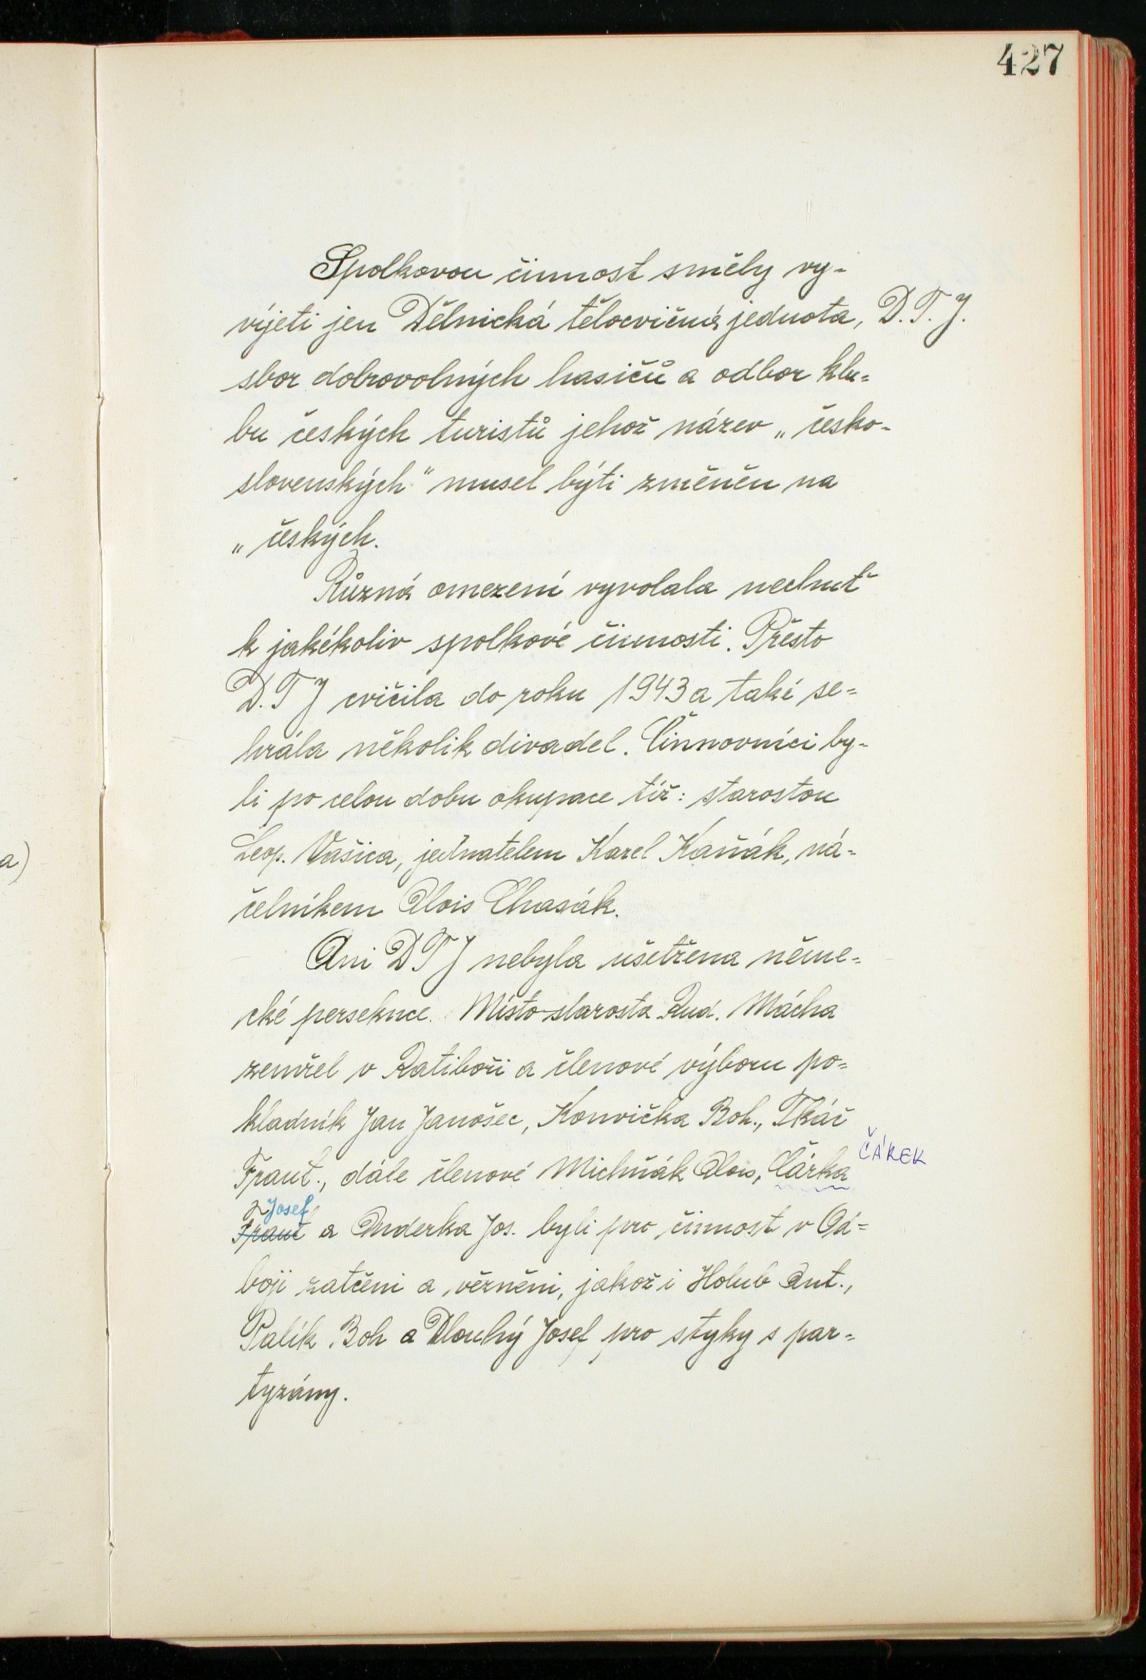 427
Spolkovou činnost směly vy-
víjeti jen Dělnická tělocvičná jednota, D.T.J.
sbor dobrovolných hasičů a odbor klu=
bu českých turistů jehož název „česko-
slovenských" musel býti změněn na
„českých.
Různá omezení vyvolala nechuť
k jakékoliv spolkové činnosti. Přesto
D.T J cvičila do roku 1943 a také se=
hrála několik divadel. Činnovníci by-
li po celou dobu okupace tíž: starostou
Leop. Vašica, jednatelem Karel Kaňák, ná-
čelníkem Alois Chasák.
Ani D T J nebyla ušetřena něme-
cké persekuce. Místo-starosta Rud. Mácha
zemřel v Ratiboři a členové výboru po=
kladník Jan Janošec, Konvička Boh., Tkáč
Frant., dále členové Michňák Alois, Čárka ČÁREK
Josef
Frant a Anderka Jos. byli pro činnost v Od=
boji zatčeni a vězněni, jakož i Holub Ant.,
Palík Boh a Dlouhý Josef pro styky s par=
tyzány.
a)